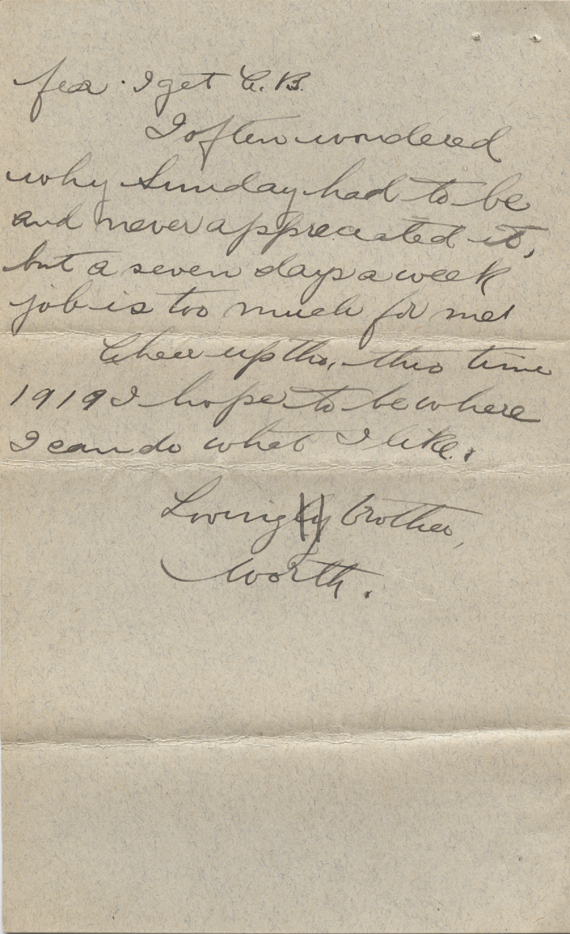 fear I get C.B.
I often wondered
why Sunday had to be
and never appreciated it,
but a seven days a week
job is too much for me!
Cheer up tho, this time
1919 I hope to be where
I can do what I like.
Loving brother,
Worth.